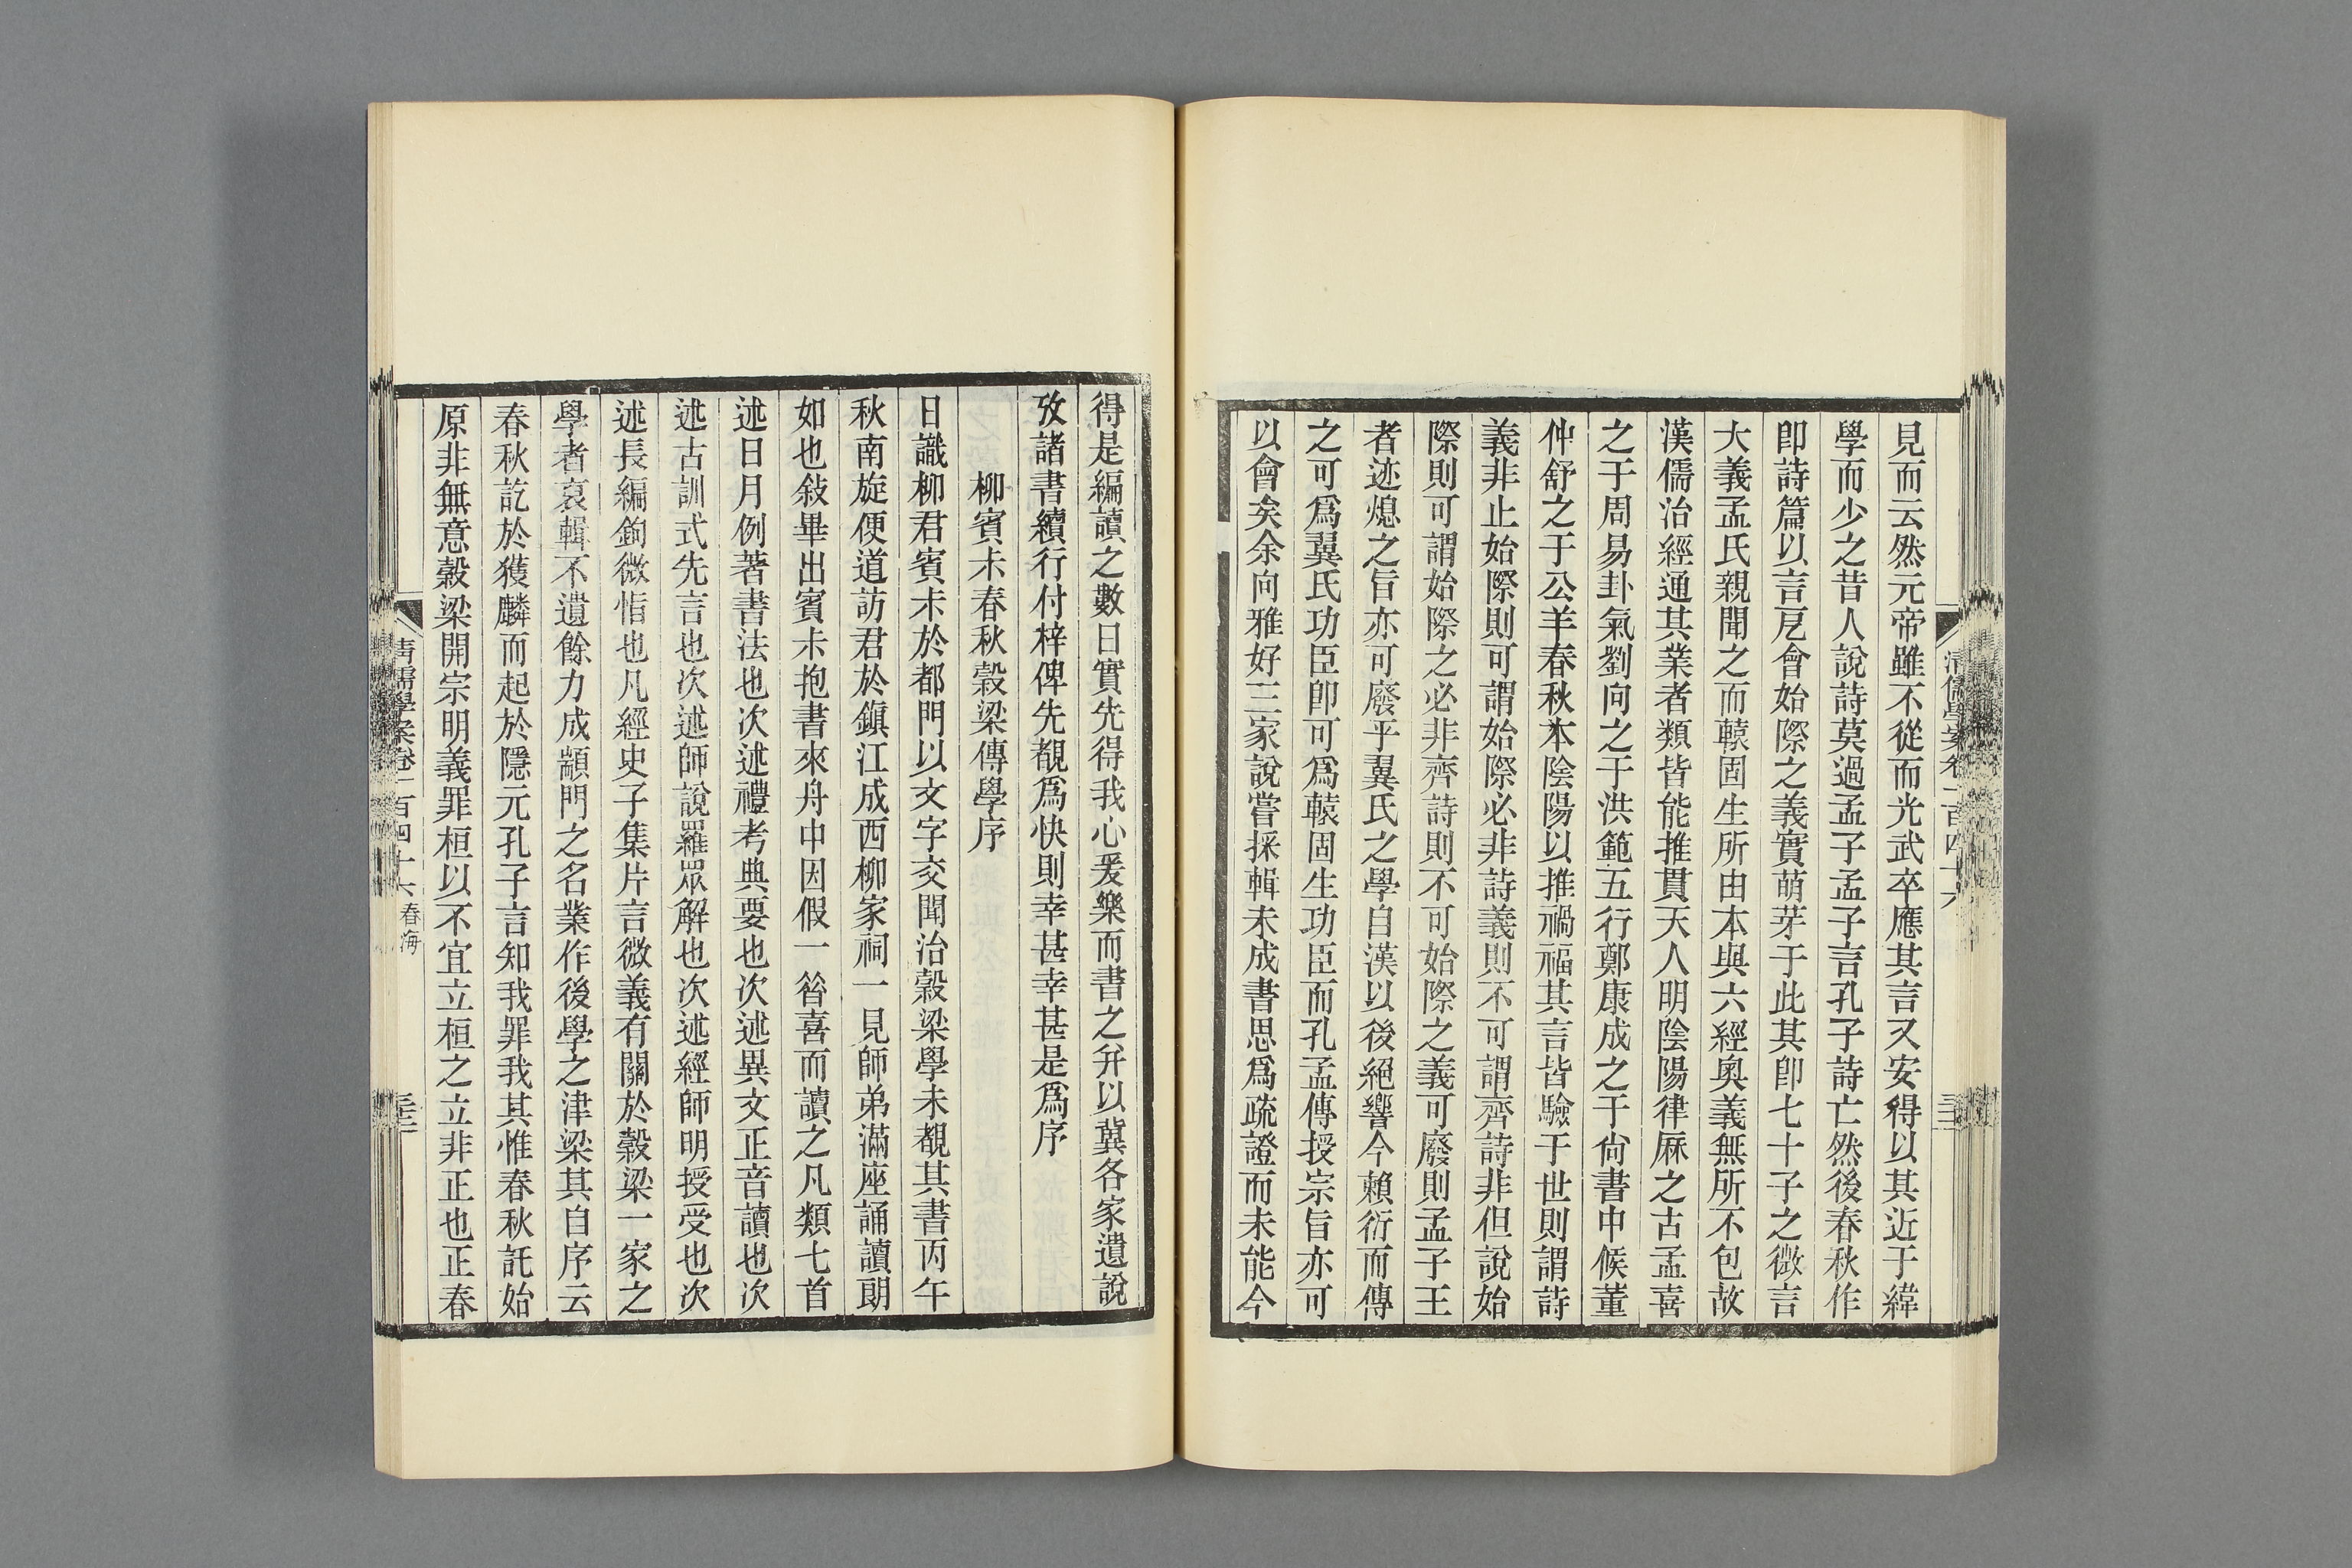 見而云然元帝雖不從而光武卒應其言又安得以其近于緯
學而少之昔人說詩莫過孟子孟子言孔子詩亡然後春秋作
卽詩篇以言戹會始際之義實萌芽于此其卽七十子之微言
大義孟氏親聞之而轅固生所由本與六經奧義無所不包故
漢儒治經通其業者類皆能推貫天人明陰陽律厤之古孟喜
之于周易卦氣劉向之于洪範五行鄭康成之于尙書中候董
仲舒之于公羊春秋本陰陽以推禍福其言皆驗于世則謂詩
義非止始際則可謂始際必非詩義則不可謂齊詩非但說始
際則可謂始際之必非齊詩則不可始際之義可廢則孟子王
者迹熄之旨亦可廢乎翼氏之學自漢以後絕響今賴衍而傳
之可爲翼氏功臣卽可爲轅固生功臣而孔孟傳授宗旨亦可
以會矣余向雅好三家說嘗採輯未成書思爲疏證而未能今
清儒學案卷一百四十六
得是編讀之數日實先得我心爰樂而書之弁以冀各家遺說
攷諸書續行付梓俾先覩爲快則幸甚幸甚是爲序
柳賓朩春秋穀梁傳學序
日識柳君賓朩於都門以文字交聞治穀梁學未覩其書丙午
秋南旋便道訪君於鎭江成西柳家祠一見師弟滿座誦讀朗
如也敍畢出賓朩抱書來舟中因假一晵喜而讀之凡類七首
述日月例著書法也次述禮考典要也次述異文正音讀也次
述古訓式先言也次述師說羅眾解也次述經師明授受也次
述長編鉤微恉也凡經史子集片言微義有關於穀梁一家之
學者裒輯不遺餘力成顓門之名業作後學之津梁其自序云
春秋訖於獲麟而起於隱元孔子言知我罪我其惟春秋託始
原非無意穀梁開宗明義罪桓以不宜立桓之立非正也正春
清儒學案卷一百四十六 春海